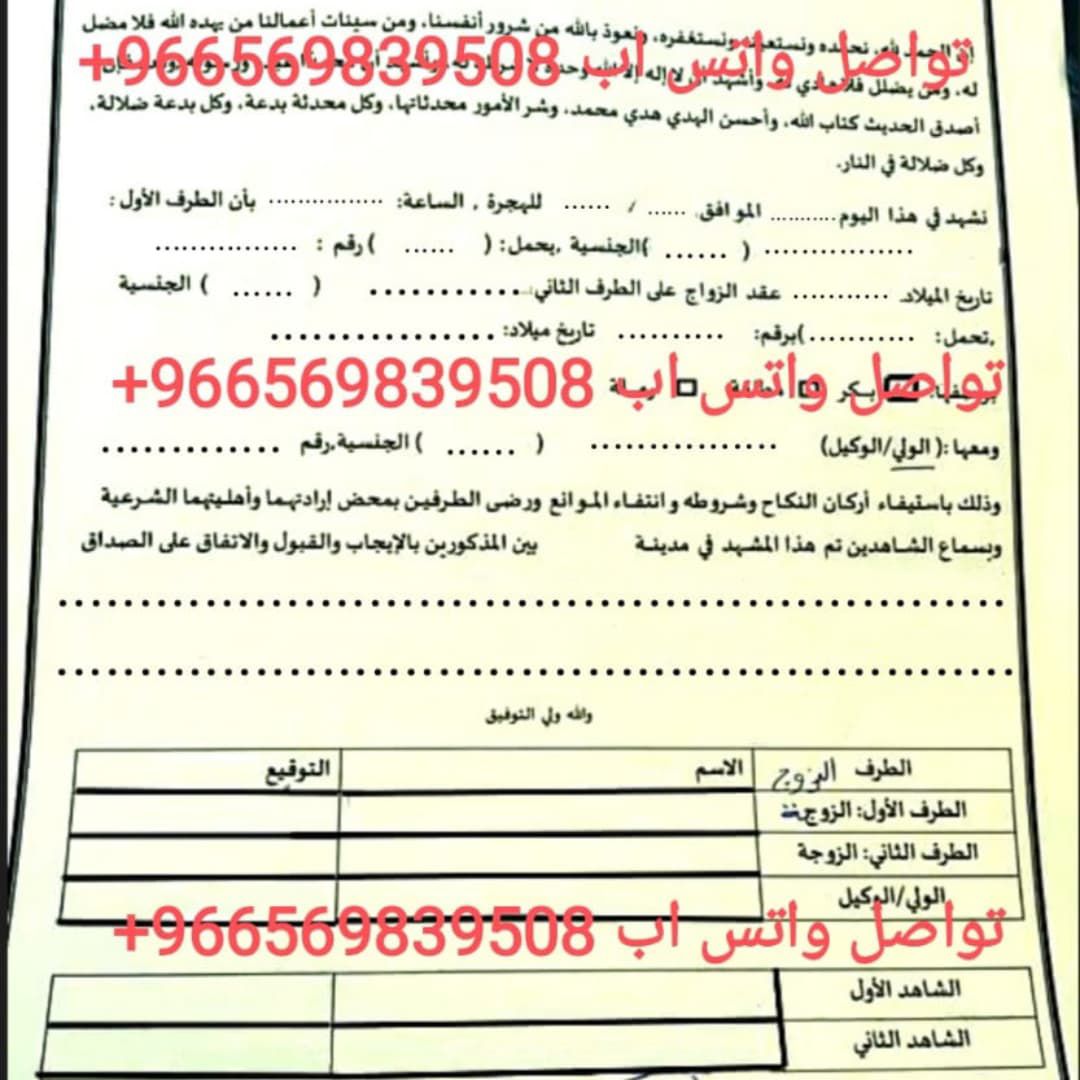 إن الحمد لله، نحمده ونستعينه ونستغفره، ونعوذ بالله من شرور أنفسنا، ومن سيئات أعمالنا من يهده الله فلا مضل
تواصل واتس اب 966569839508+
له، ومن يضلل فلا هادي له، وأشهد أن لا إله إلا الله وحده لا
أصدق الحديث كتاب الله، وأحسن الهدي هدي محمد، وشر الأمور محدثاتها، وكل محدثة بدعة، وكل بدعة ضلالة،
وكل ضلالة في النار.
نشهد في هذا اليوم ........... الموافق. ...... / ...... للهجرة , الساعة: ................ بأن الطرف الأول :
................ ( ...... )الجنسية ,يحمل: ( ...... ) رقم : ...............
تاريخ الميلاد. ........... عقد الزواج على الطرف الثاني: ............ ( ...... ) الجنسية
,تحمل: ...........)برقم: ........... تاريخ ميلاد: .................
تواصل واتس اب 966569839508+
بكر
ومعها :( الولي/الوكيل) ................ ( ...... ) الجنسية,رقم .............
وذلك باستيفاء أركان النكاح وشروطه و انتفاء الموانع ورضى الطرفين بمحض إرادتهما وأهليتهما الشرعية
وبسماع الشاهدين تم هذا المشهد في مدينة بين المذكورين بالإيجاب والقبول والاتفاق على الصداق
والله ولي التوفيق
الطرف الزوج الاسم التوقيع
الطرف الأول: الزوج
الطرف الثاني: الزوجة
الولي/الوكيل
تواصل واتس اب 966569839508+
الشاهد الأول
الشاهد الثاني